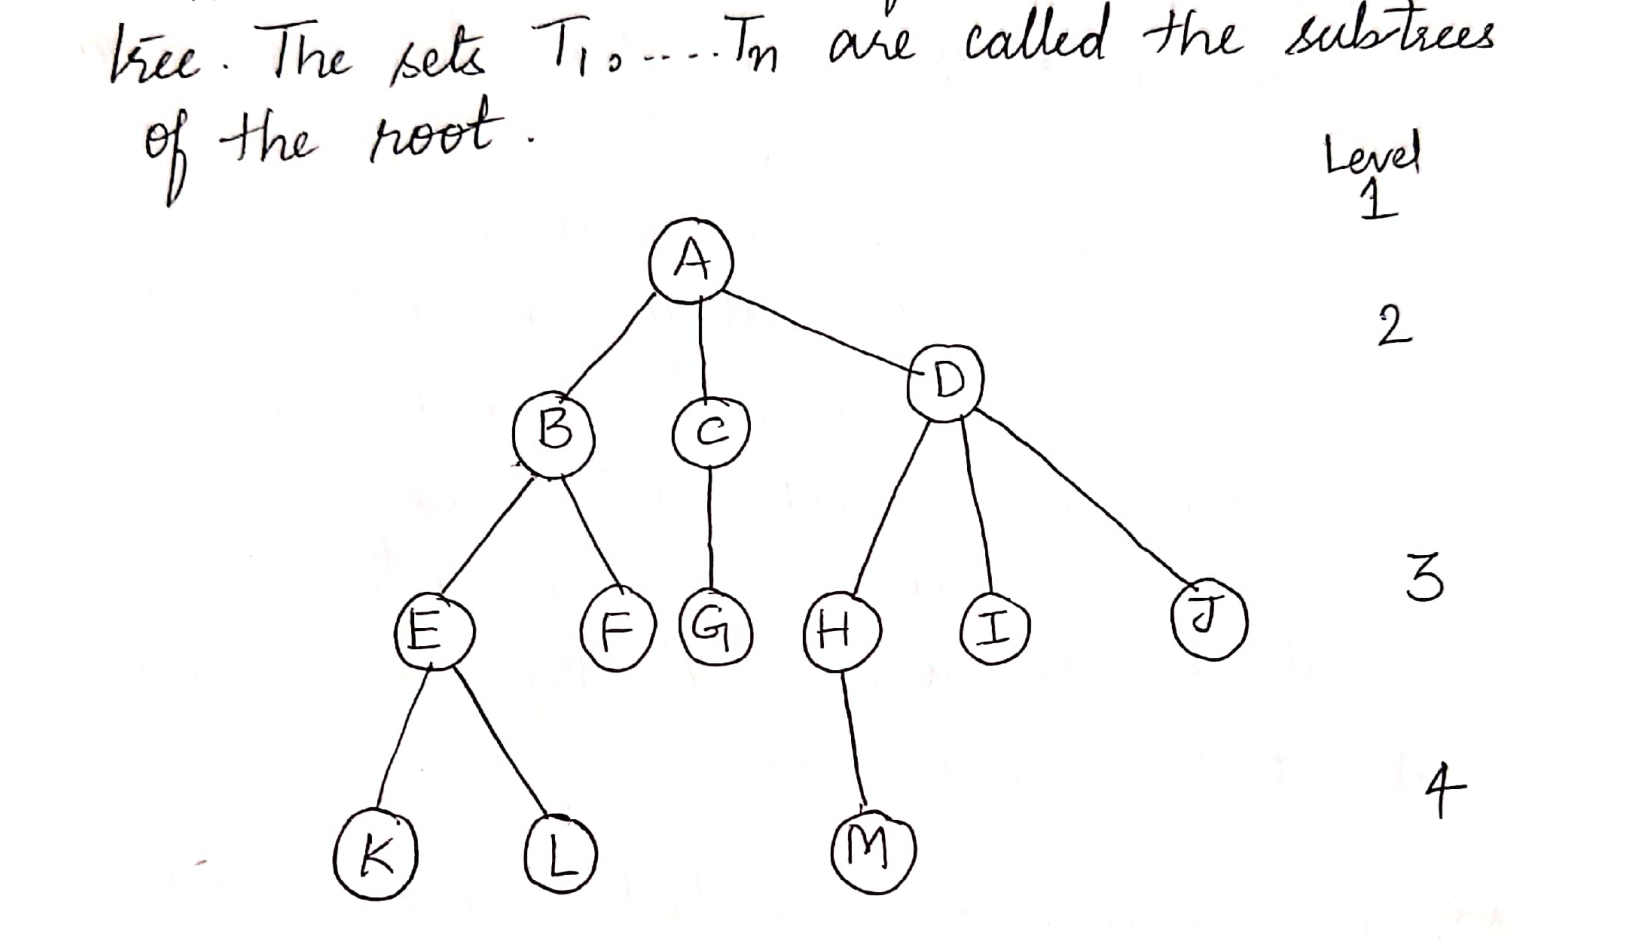 tree. The sets T1, ..... Tn are called the subtrees
of the root.
Level
1
A
2
D
B
C
3
E
F
G
H
I
J
4
K
L
M